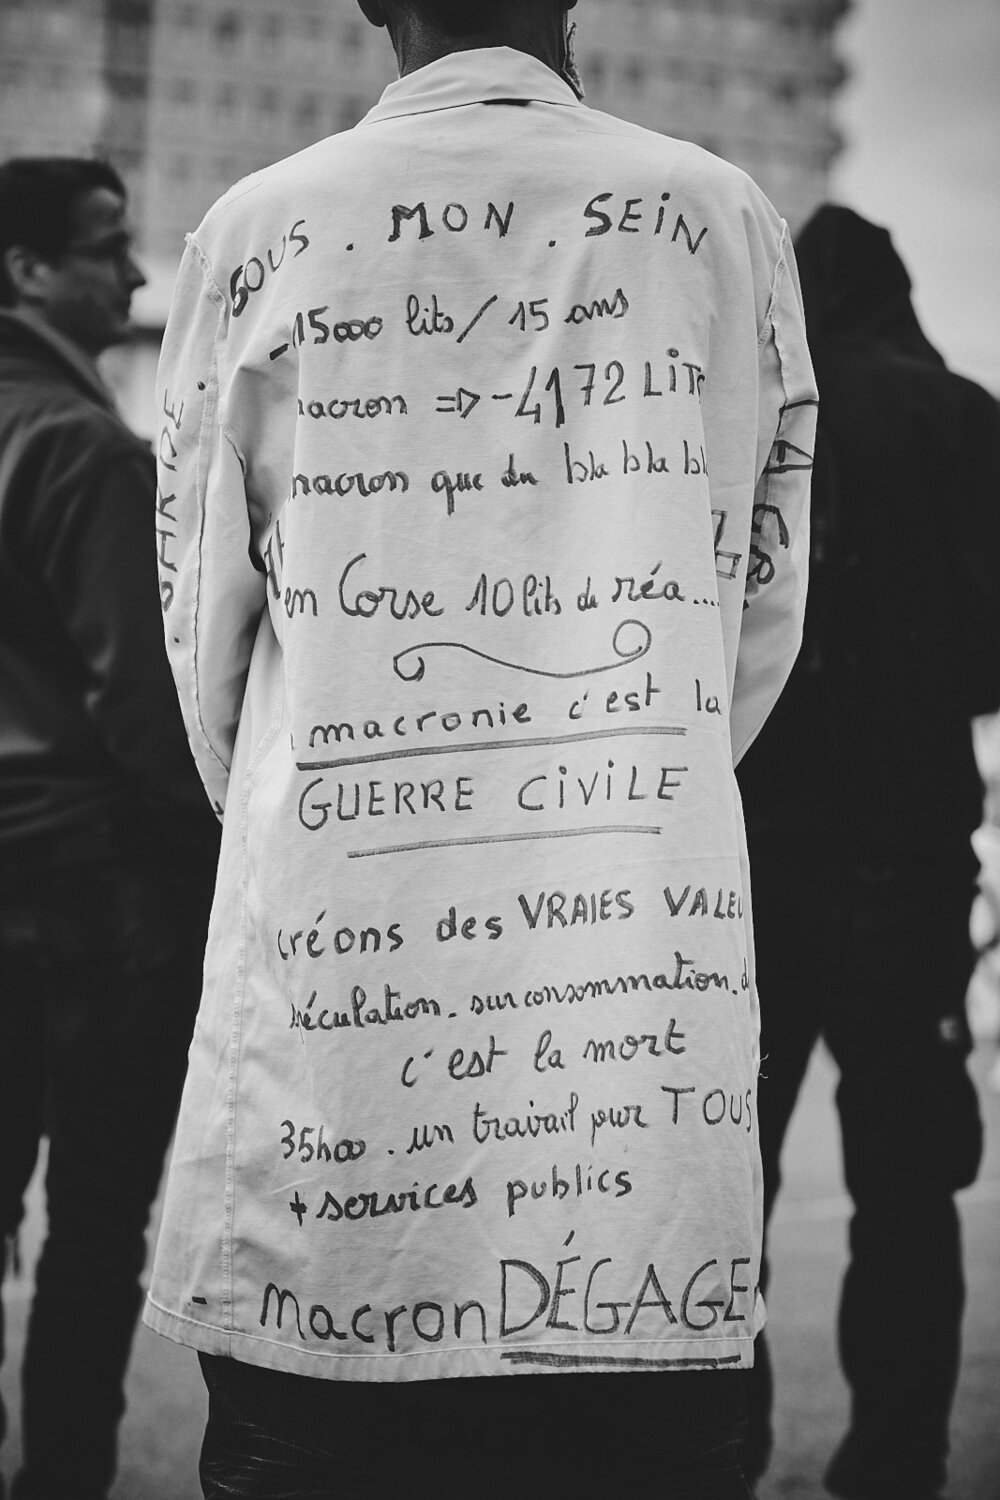 SOUS . MON . SEIN
-15000 lits / 15 ans
macron => -4172 LITS
macron que du bla bla bl
en Corse 10 lits de réa....
macronie c'est la
GUERRE CIVILE
créons des VRAIES VALEU
spéculation. surconsommation. d
c'est la mort
35h00. un travail pour TOUS
+ services publics
- macron DÉGAGE
GARDE.